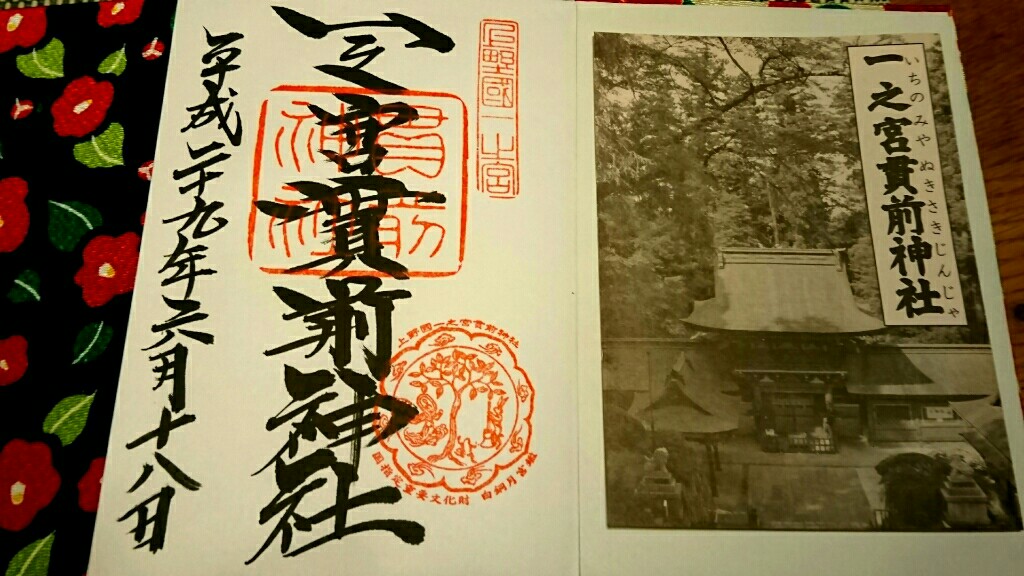 一之宮貫前神社
いちのみや ぬきさきじんじゃ
上野國一之宮
一之宮貫前神社
貫前
神社
上野国一之宮貫前神社
国指定重要文化財 白銅月宮鑑
平成二十九年六月十八日